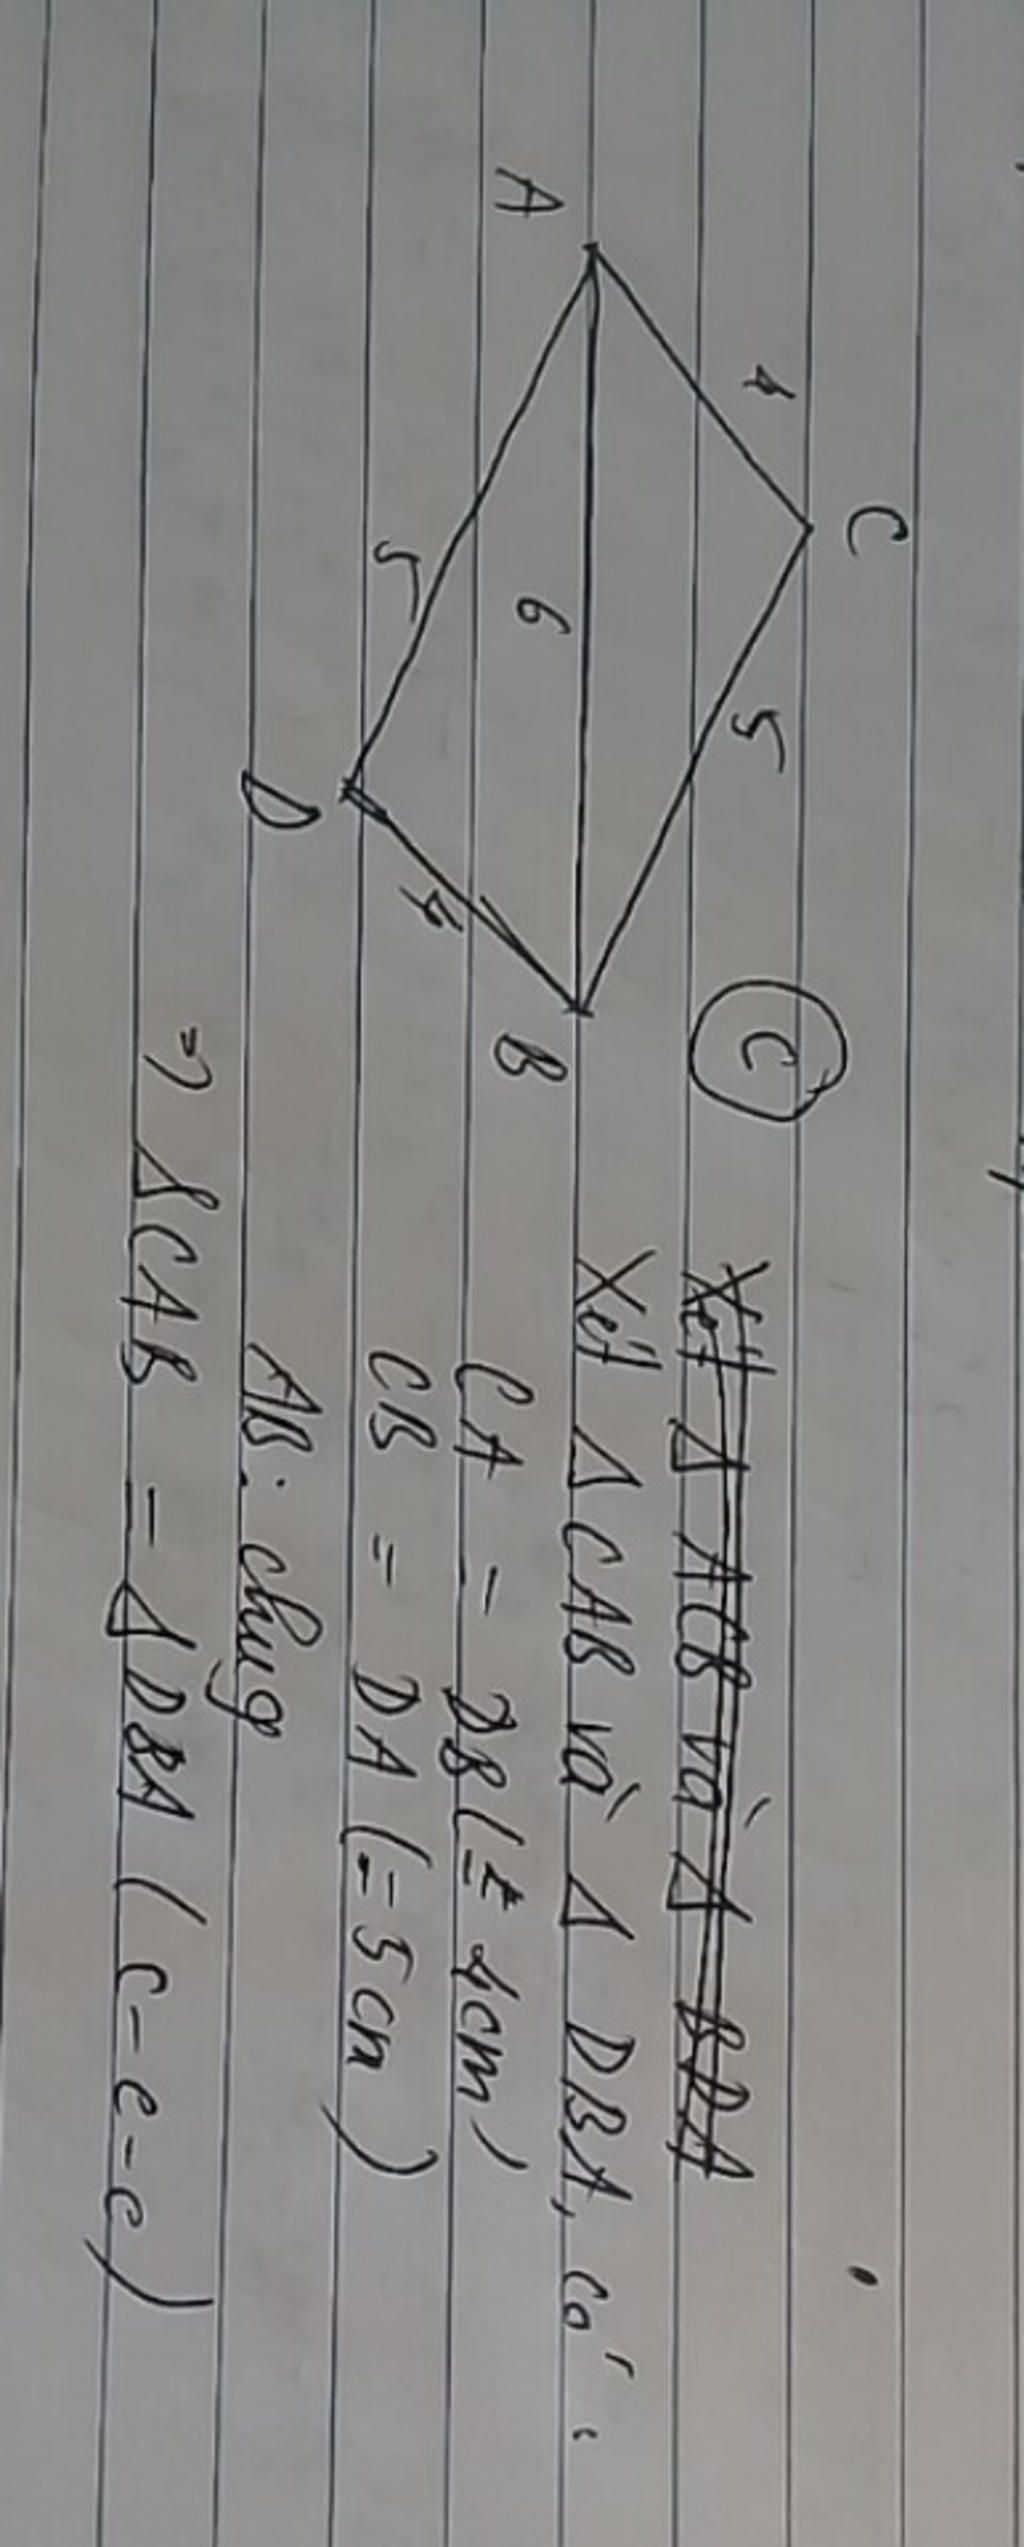 C
4
5
A
6
B
5
4
D
C
Xét Δ ACB và Δ BDA
Xét Δ CAB và Δ DBA, có:
CA = DB (= 4cm)
CB = DA (= 5cm)
AB: chug
=> ΔCAB = ΔDBA (c-c-c)